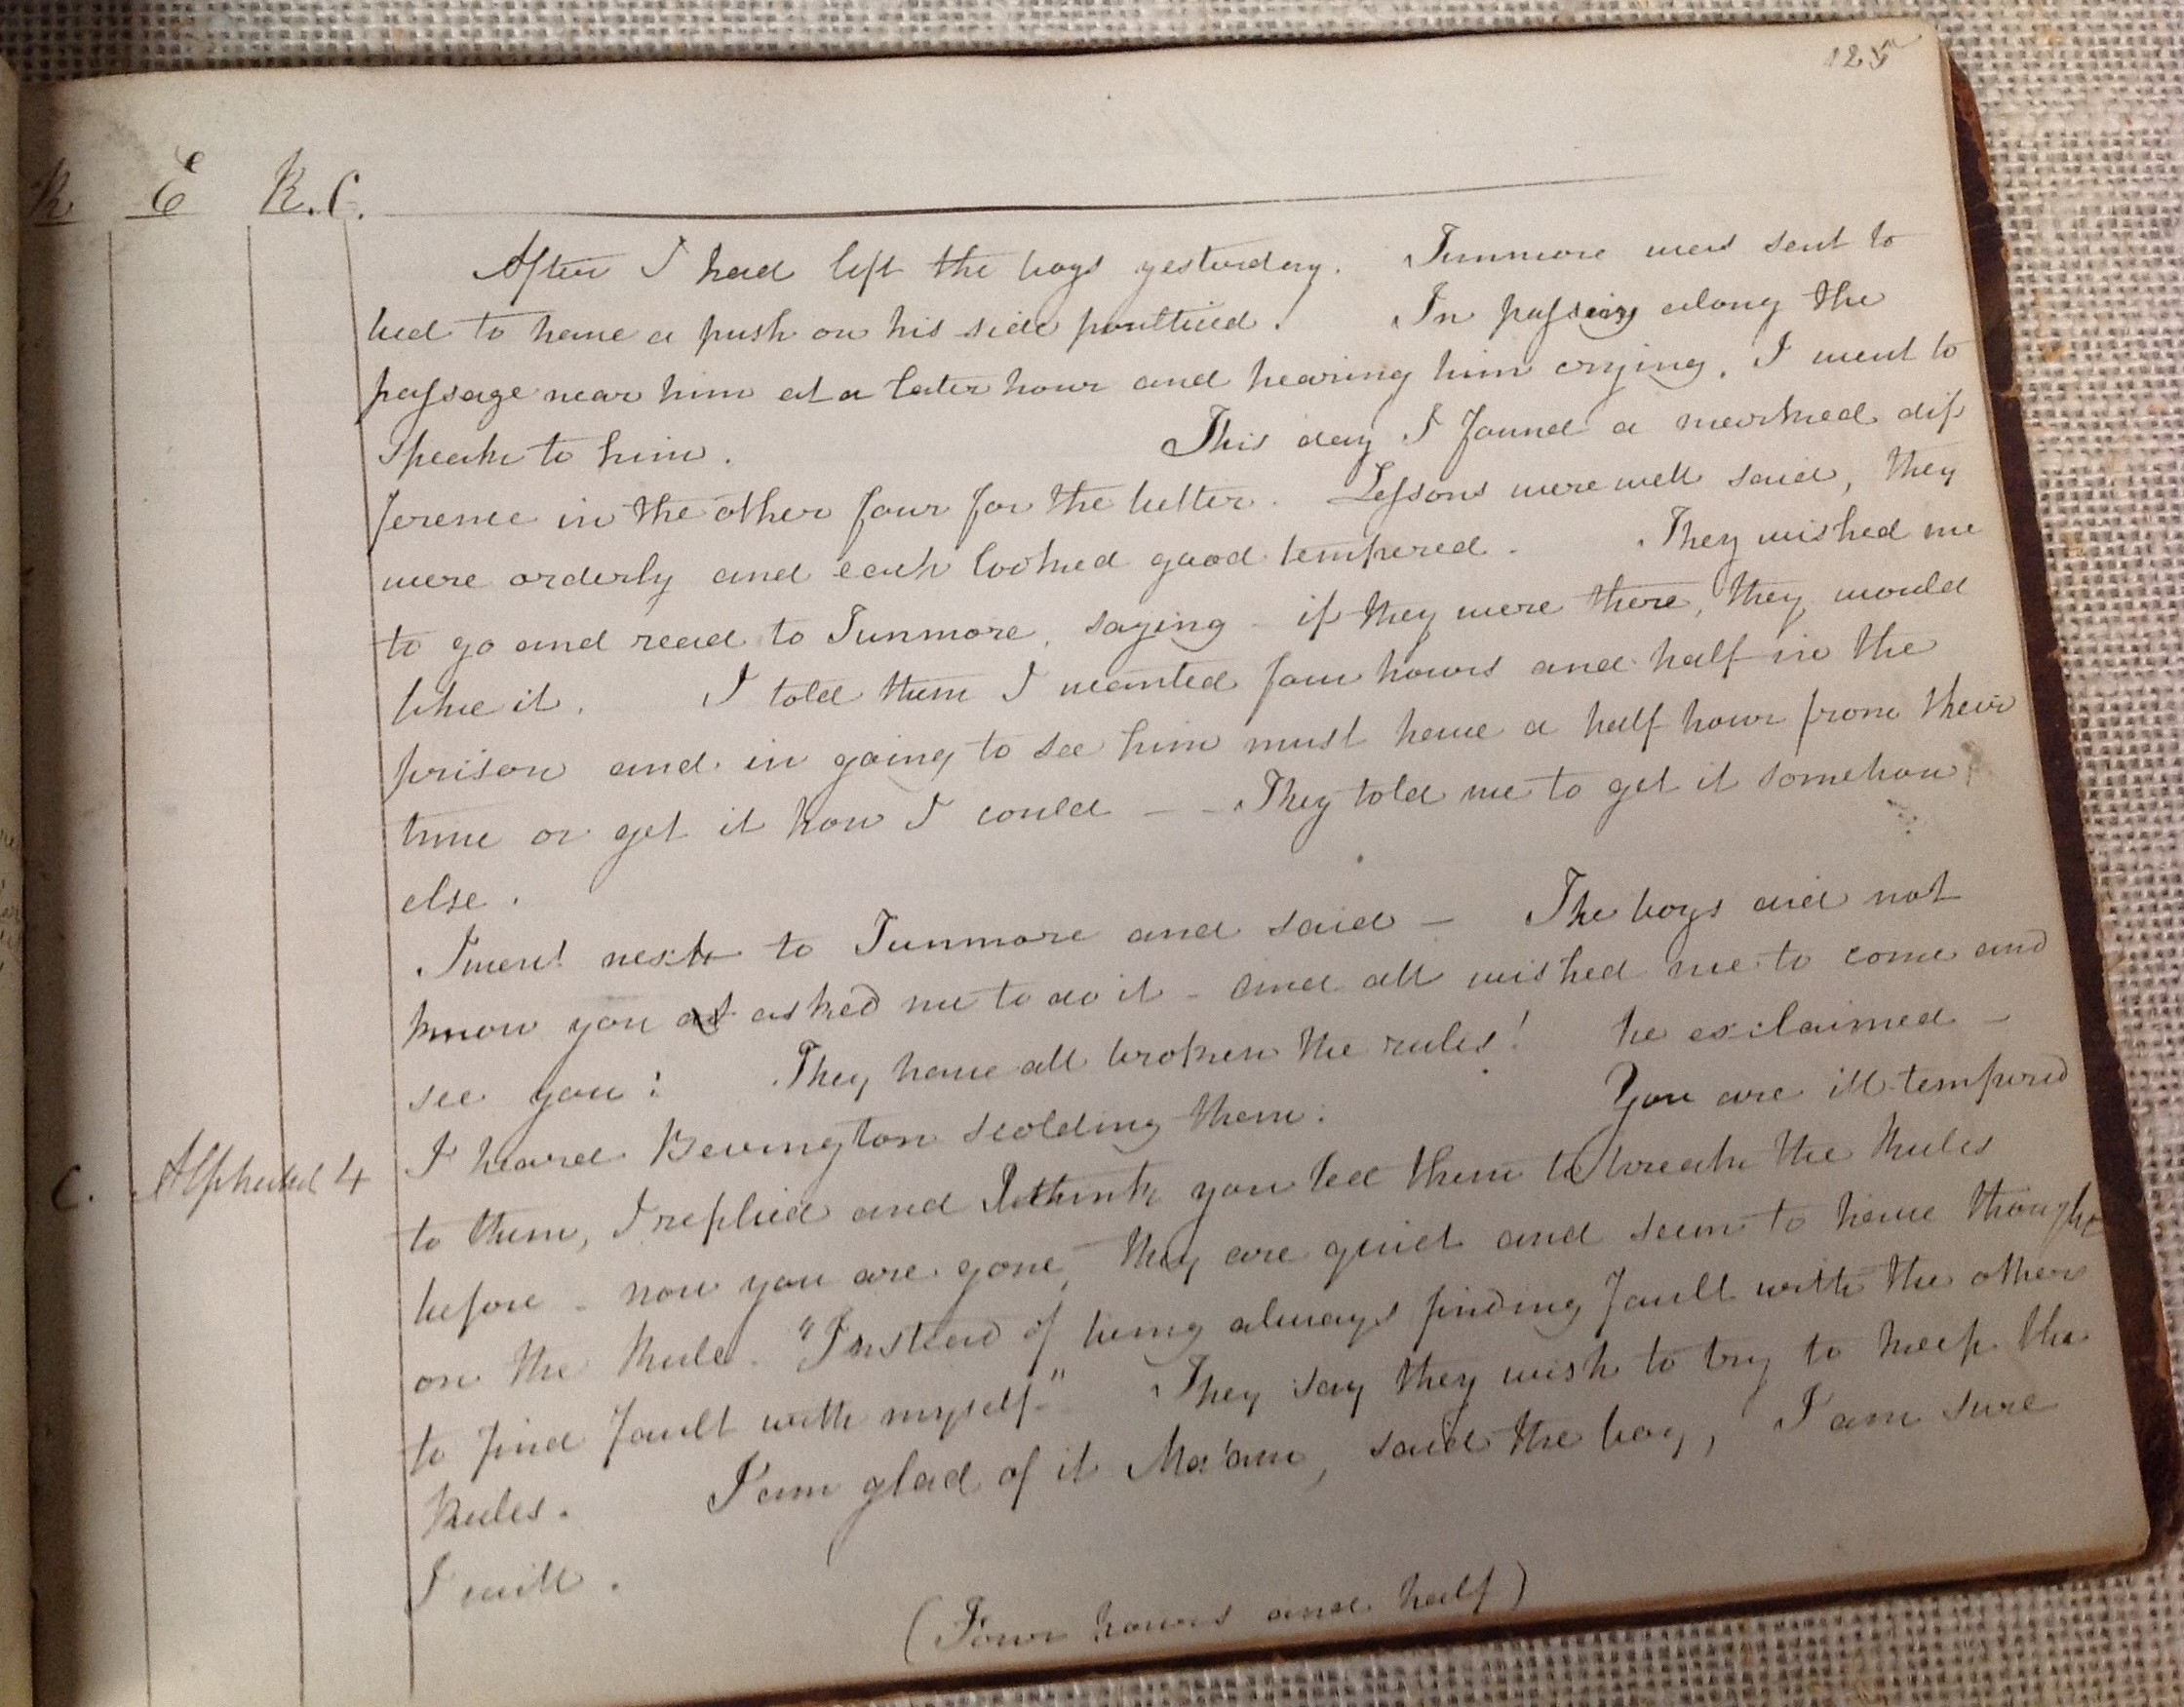 125
R E R.C.
After I had left the boys yesterday. Tunmore was sent to
bed to have a push on his side poulticed. In passing along the
passage near him at a later hour and hearing him crying, I went to
speak to him. This day I found a marked dif
ference in the other four for the better. Lessons were well said, they
were orderly and each looked good tempered. They wished me
to go and read to Tunmore, saying - if they were there, they would
like it. I told them I wanted four hours and half in the
prison and in going to see him must have a half hour from their
time or get it how I could - - They told me to get it somehow
else.
I went next to Tunmore and said - The boys did not
know you asked me to do it - and all wished me to come and
see you: They have all broken the rules! he exclaimed -
I heard Bevington scolding them. You are ill-tempered
C. Alphabet 4
to them, I replied and I think you led them to break the Rules
before - now you are gone, they are quiet and seem to have thought
on the Rule. "Instead of being always finding fault with the others
to find fault with myself." They say they wish to try to keep the
Rules. I am glad of it Ma'am, said the boy, I am sure
I will.
(Four hours and half)